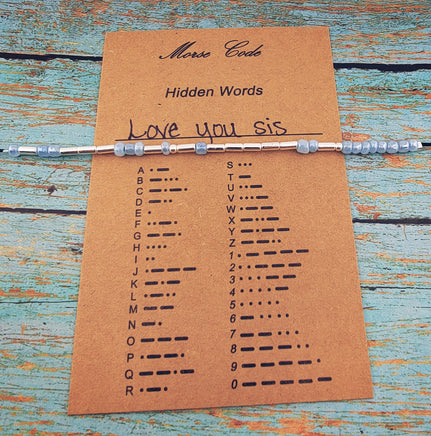 Morse Code
Hidden Words
Love you sis
A • —
B — • • •
C — • — •
D — • •
E •
F • • — •
G — — •
H • • • •
I • •
J • — — —
K — • —
L • — • •
M — —
N — •
O — — —
P • — — •
Q — — • —
R • — •
S • • •
T —
U • • —
V • • • —
W • — —
X — • • —
Y — • — —
Z — — • •
1 • — — — —
2 • • — — —
3 • • • — —
4 • • • • —
5 • • • • •
6 — • • • •
7 — — • • •
8 — — — • •
9 — — — — •
0 — — — — —